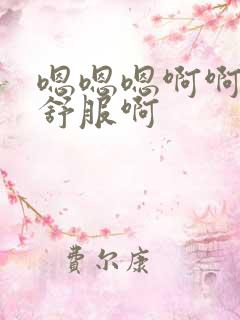 嗯嗯嗯啊啊
舒服啊
费尔康